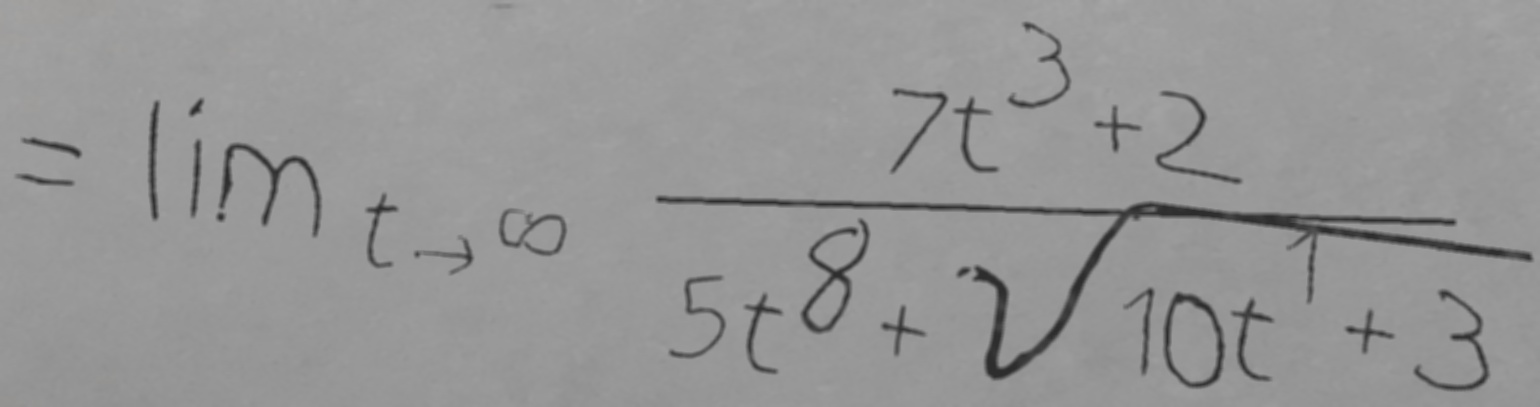 = lim t→∞ (7t^3 + 2) / (5t^8 + √(10t^1 + 3))